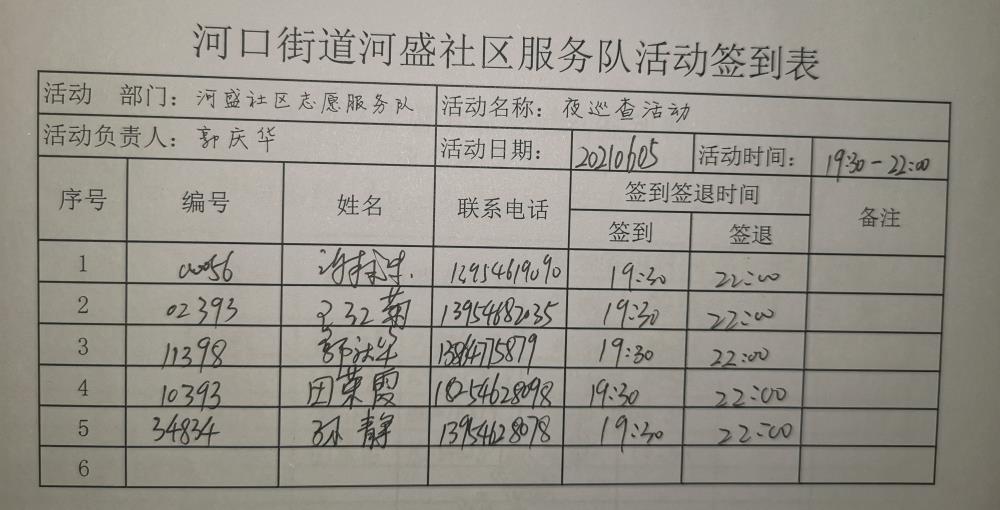 河口街道河盛社区服务队活动签到表
活动 部门：河盛社区志愿服务队 活动名称：夜巡查活动
活动负责人：郭庆华 活动日期：20210605 活动时间：19:30-22:00
序号 编号 姓名 联系电话 签到签退时间 备注
签到 签退
1 00056 13954619090 19:30 22:00
2 02393 13954682035 19:30 22:00
3 11398 郭庆华 19:30 22:00
4 10393 田荣霞 18254628098 19:30 22:00
5 34834 孙静 13954628078 19:30 22:00
6